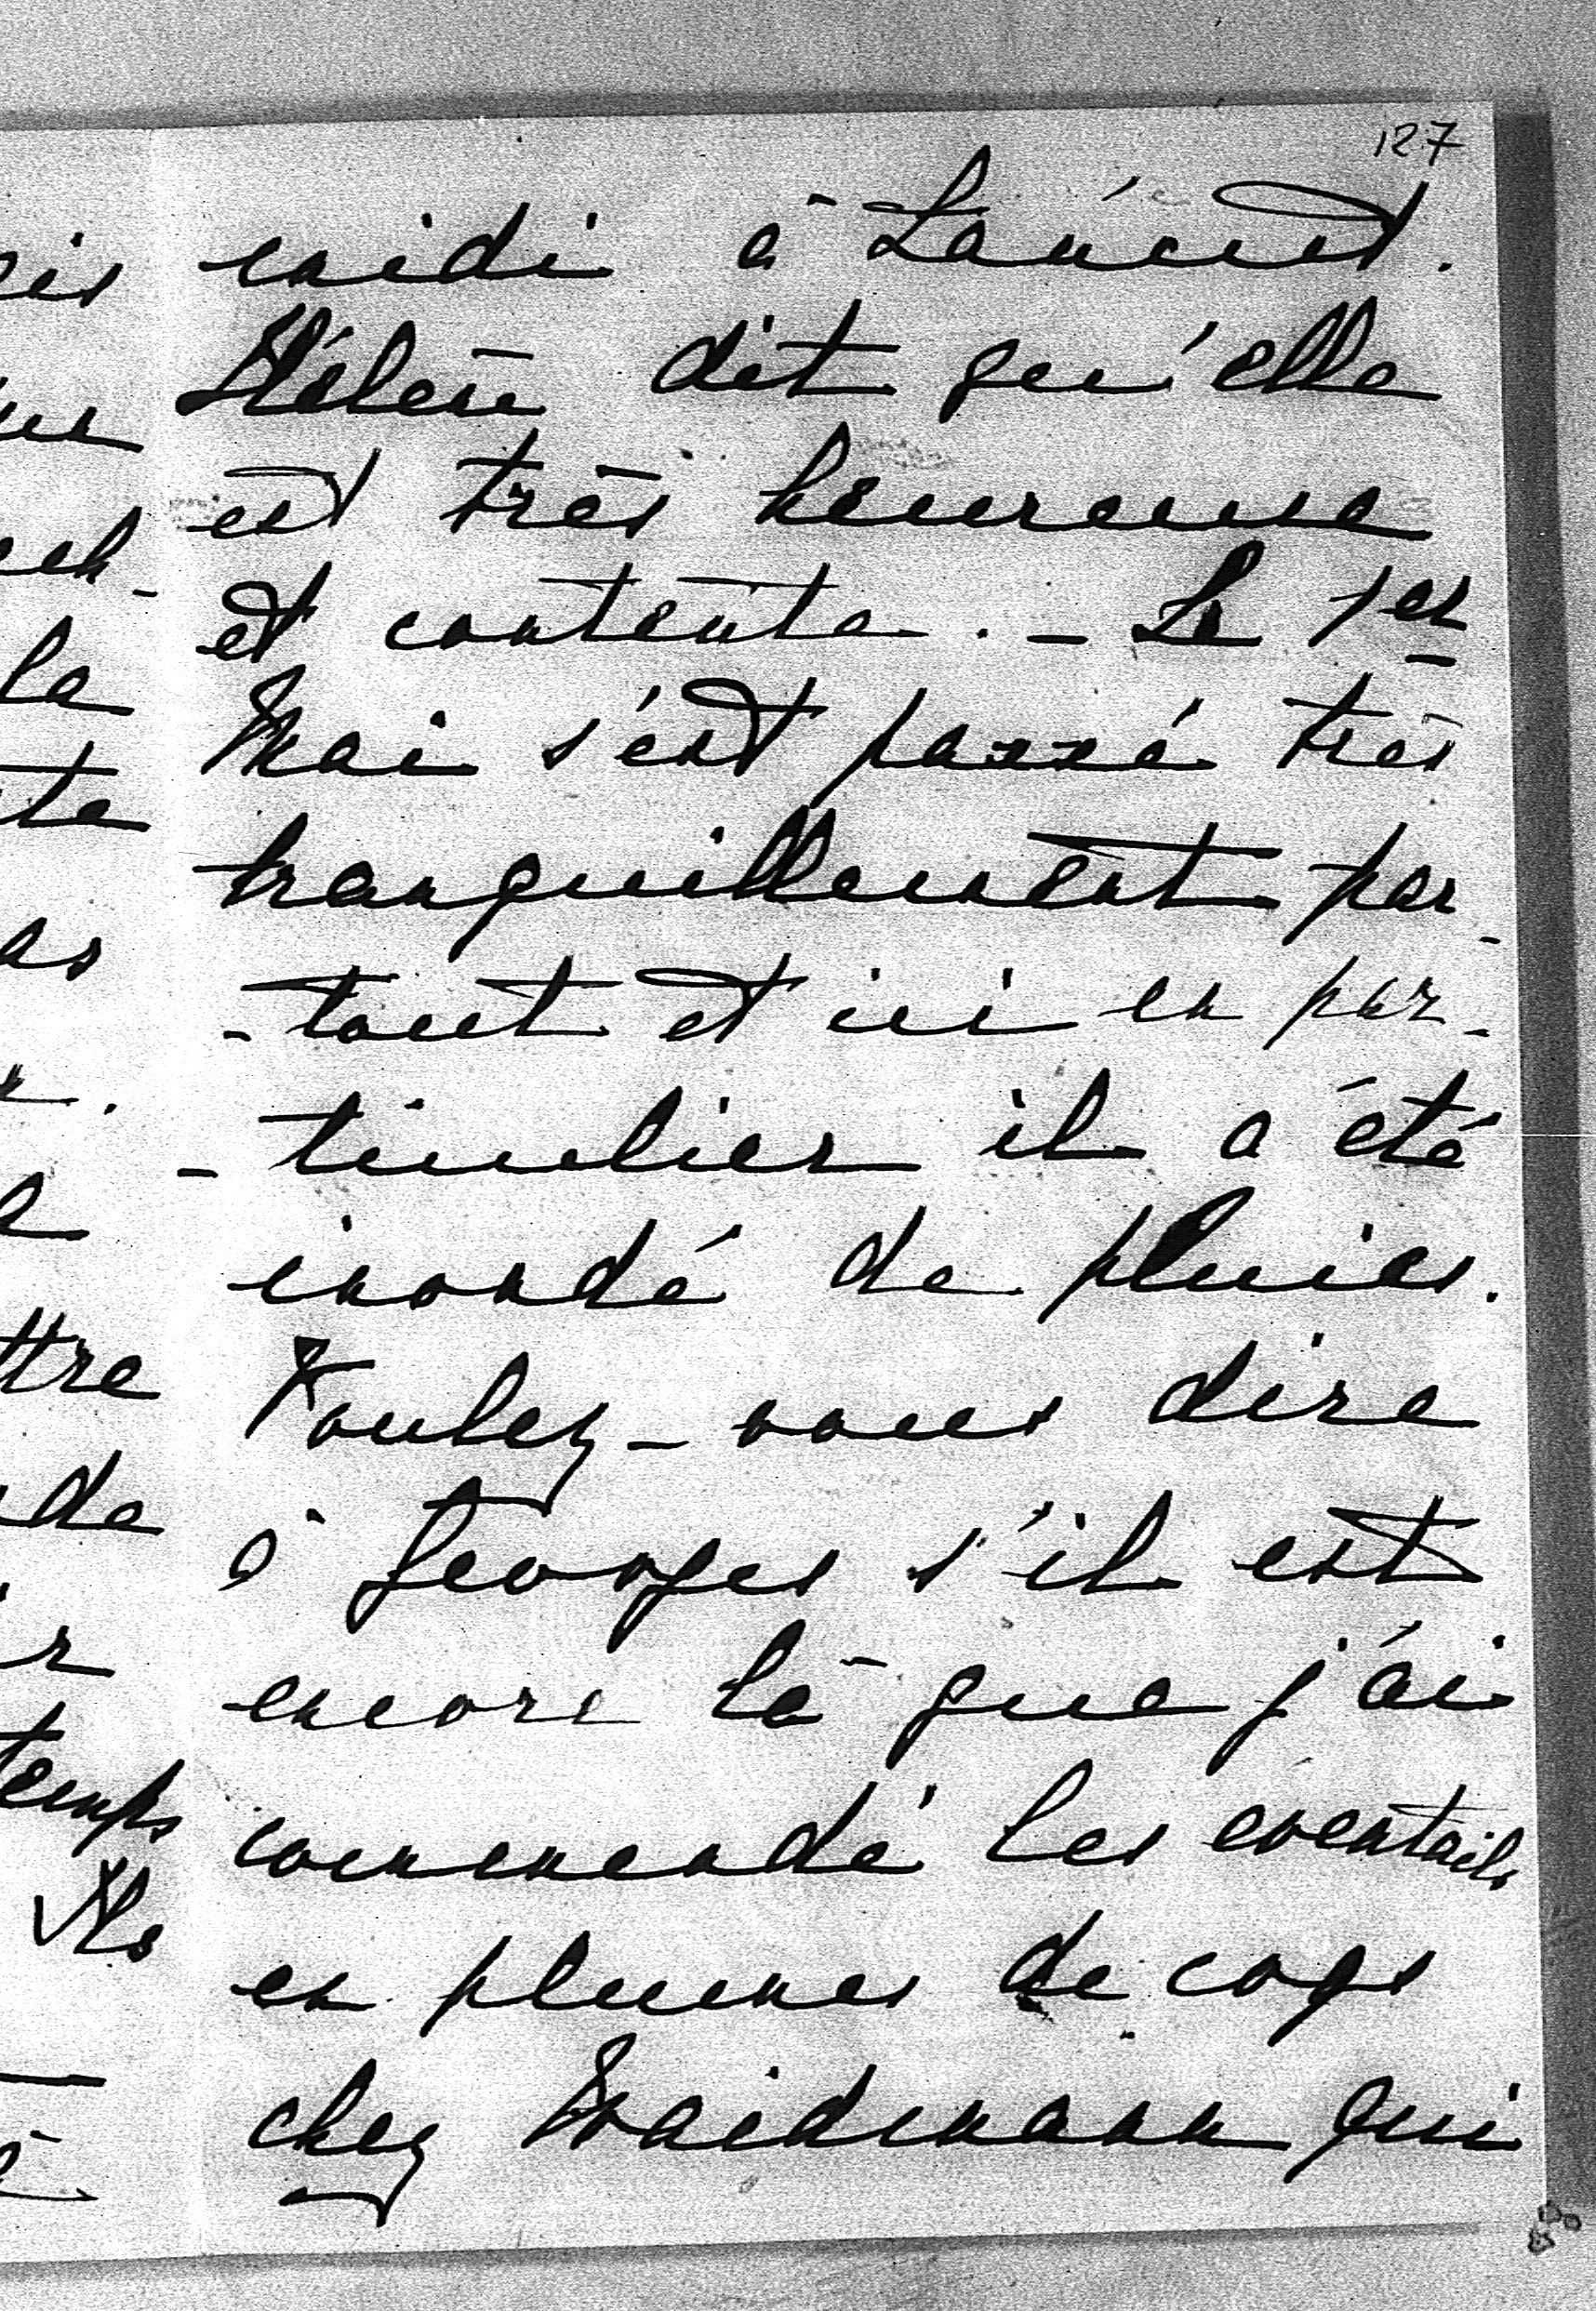 127
midi à Lancut.
Hélène dit qu'elle
est très heureuse
et contente. - Le 1er
Mai s'est passé très
tranquillement par-
-tout et ici en par-
-ticulier il a été
inondé de pluies.
Voulez-vous dire
à Georges s'il est
encore là que j'ai
commendé les eventails
en plumes de coqs
chez Waidmann qui
la
temps